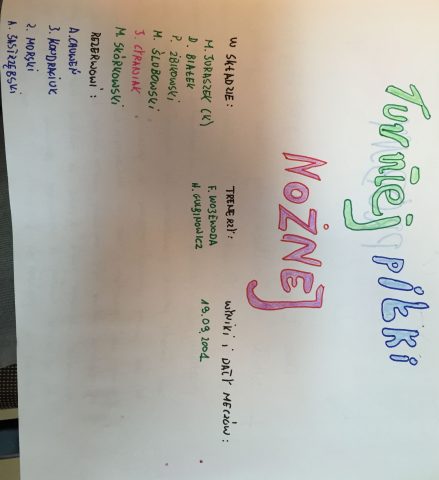 Turniej PIŁKI
NOŻNEJ
W SKŁADZIE:
M. JURASZEK (K)
D. BIAŁEK
P. ZBIKOWSKI
M. ŚLUBOWSKI
J. CYRANIAK
M. SKÓRKOWSKI
REZERWOWI:
A. CAUWEŃ
3. KONDRACIUK
2. MORSKI
A. SASTRZĘBSKI
TRENERZY:
F. WOJEWODA
N. GULBINOWICZ
WYNIKI i DATY MECZÓW:
19.09.2001